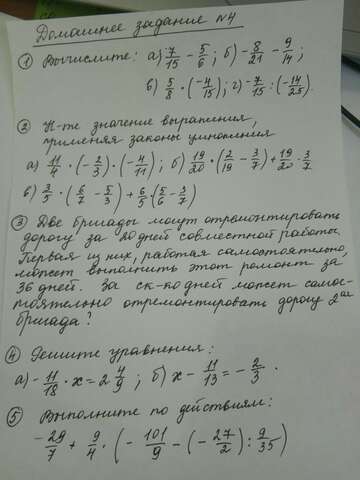 Домашнее задание №4
① Вычислите: а) 7/15 - 5/6; б) -8/21 - 9/14;
в) 5/8 · (-4/15); г) -7/15 : (-14/25).
② Н-те значение выражения,
применяя законы умножения
а) 11/4 · (-2/3) · (-4/11); б) 19/20 · (2/19 - 3/7) + 19/20 · 3/7
в) 3/5 · (6/7 - 5/3) + 6/5 (5/6 - 3/7)
③ Две бригады могут отремонтировать
дорогу за 20 дней совместной работы.
Первая из них, работая самостоятельно,
может выполнить этот ремонт за
36 дней. За ск-ко дней может самос-
тоятельно отремонтировать дорогу 2ая
бригада?
④ Решите уравнения:
а) -11/18 · x = 2 4/9; б) x - 11/13 = -2/3.
⑤ Выполните по действиям:
-29/7 + 9/4 · (-101/9 - (-27/2) : 9/35)